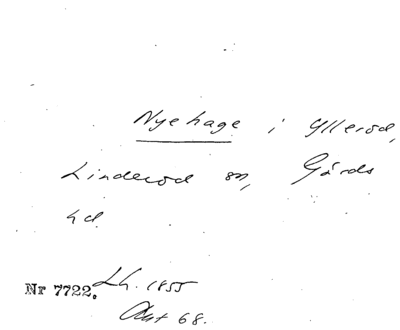 Nyehage i Ylleröd,
Linderöd sn, Gärds
hd.
Nr 7722. Lh. 1855
Avst 68.